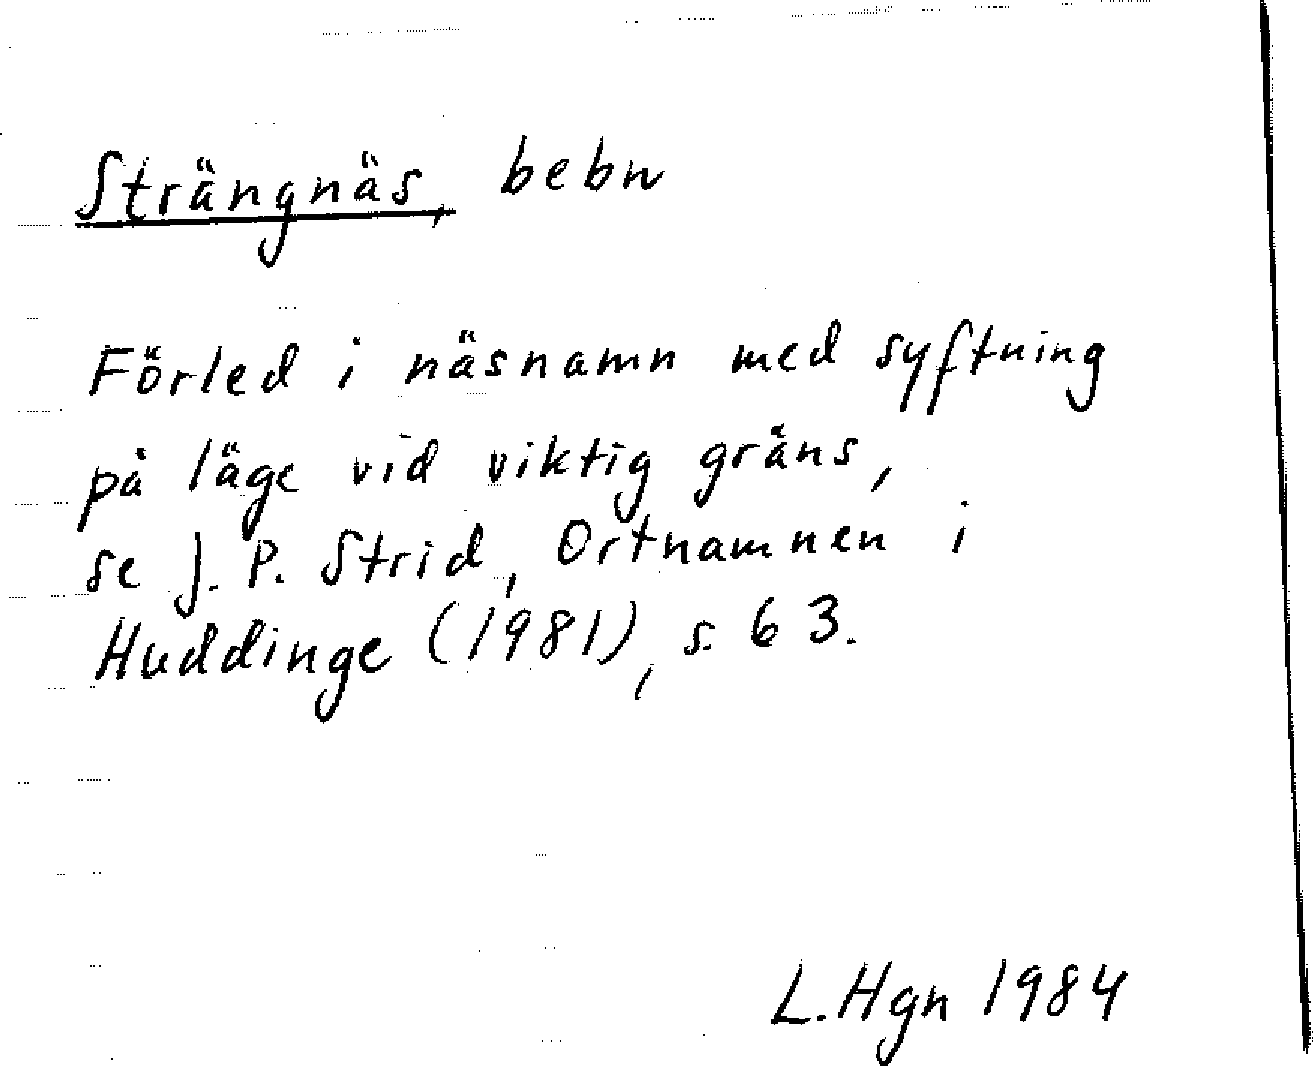 Strängnäs, bebn
Förled i näsnamn med syftning
på läge vid viktig gräns,
se J. P. Strid, Ortnamnen i
Huddinge (1981), s. 63.
L.Hgn 1984